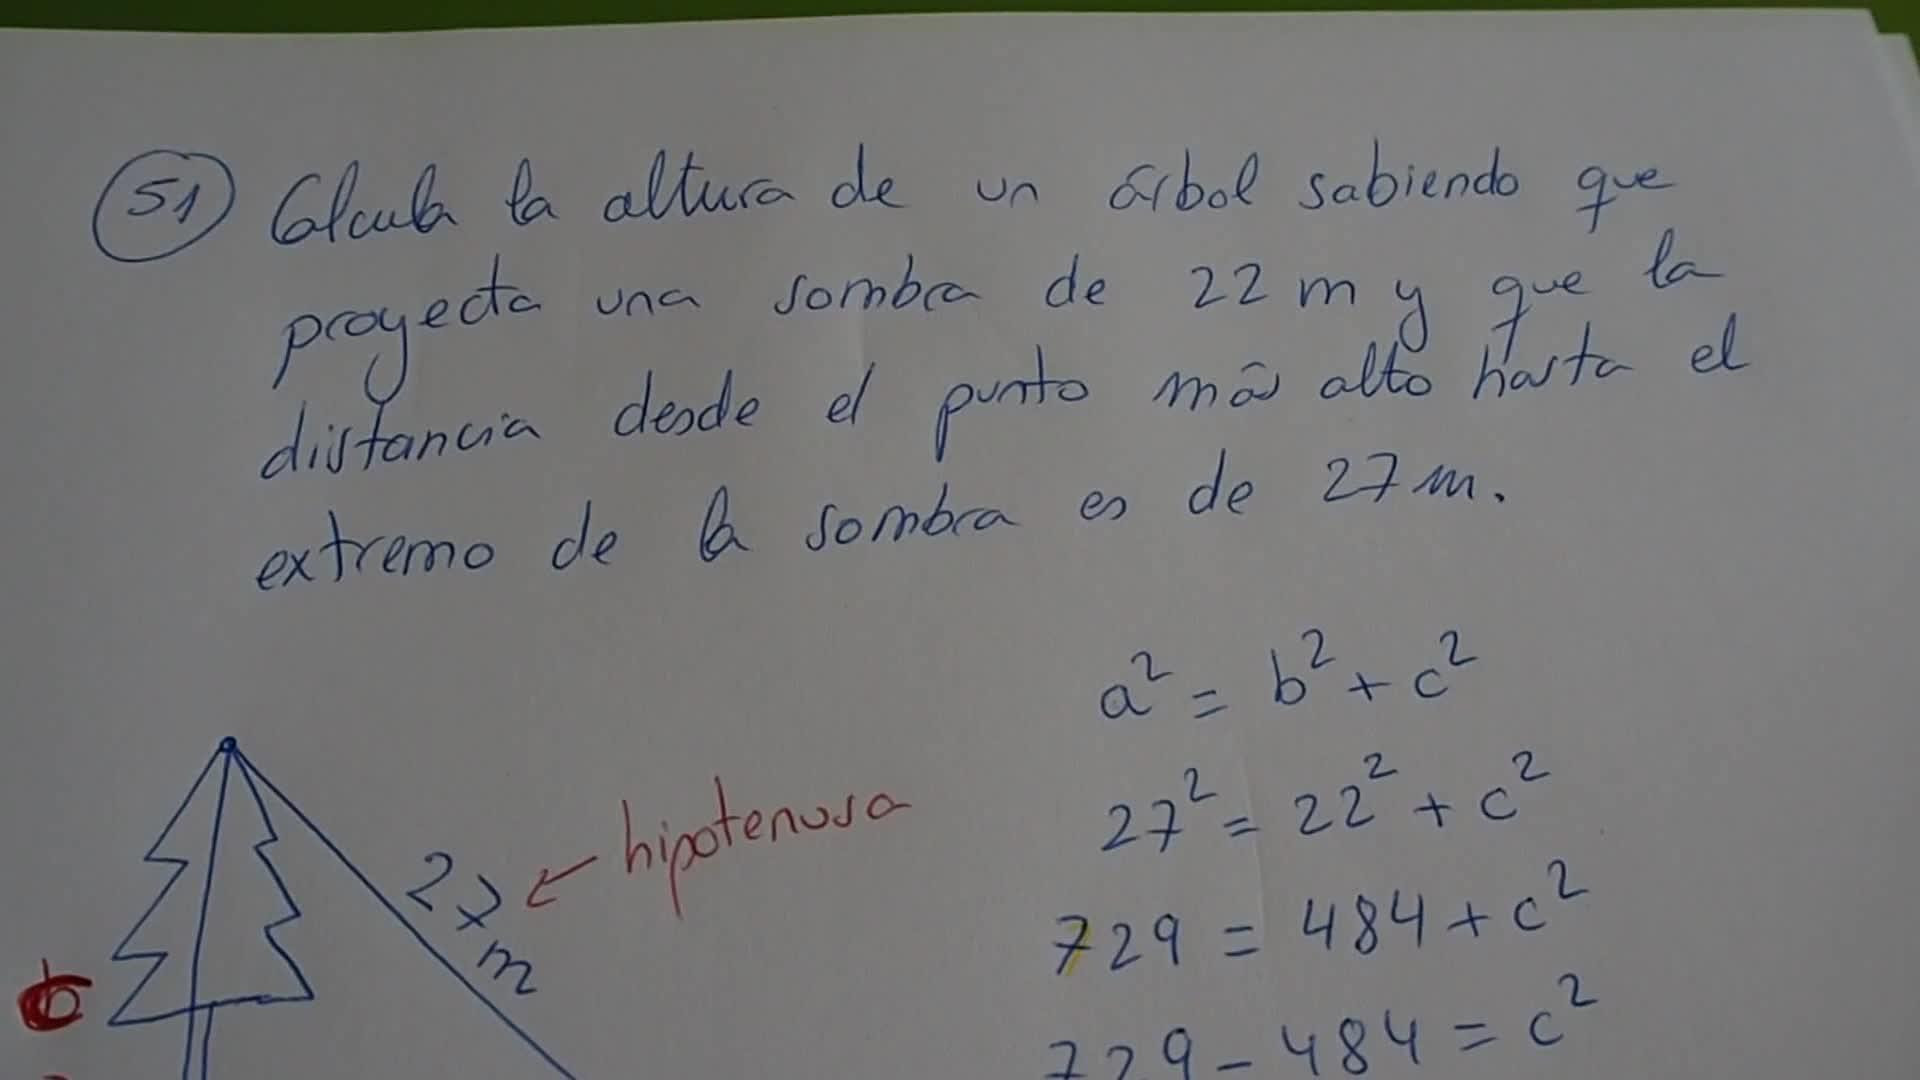 51 Calcula la altura de un árbol sabiendo que
proyecta una sombra de 22 m y que la
distancia desde el punto más alto hasta el
extremo de la sombra es de 27 m.
a² = b² + c²
27² = 22² + c²
hipotenusa
27 m
729 = 484 + c²
729 - 484 = c²